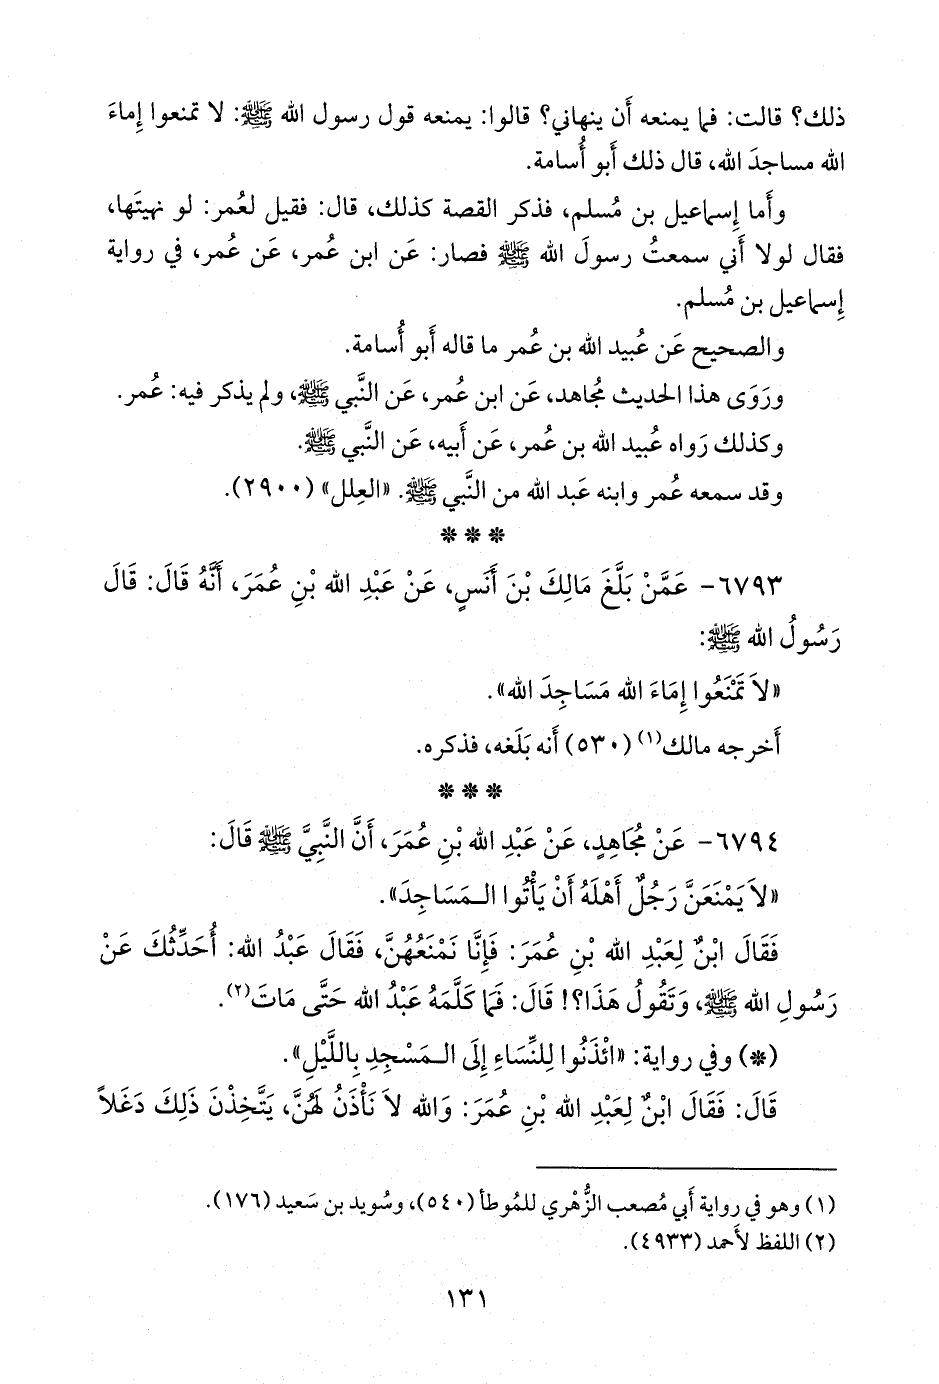 ذلك؟ قالت: فما يمنعه أَن ينهاني؟ قالوا: يمنعه قول رسول الله ﷺ: لا تمنعوا إِماءَ
الله مساجدَ الله، قال ذلك أَبو أُسامة.
وأَما إِسماعيل بن مُسلم، فذكر القصة كذلك، قال: فقيل لعُمر: لو نهيتَها،
فقال لولا أَني سمعتُ رسولَ الله ﷺ فصار: عَن ابن عُمر، عَن عُمر، في رواية
إِسماعيل بن مُسلم.
والصحيح عَن عُبيد الله بن عُمر ما قاله أَبو أُسامة.
ورَوَى هذا الحديث مُجاهد، عَن ابن عُمر، عَن النَّبي ﷺ، ولم يذكر فيه: عُمر.
وكذلك رَواه عُبيد الله بن عُمر، عَن أَبيه، عَن النَّبي ﷺ.
وقد سمعه عُمر وابنه عَبد الله من النَّبي ﷺ. «العِلل» (٢٩٠٠).
* * *
٦٧٩٣- عَمَّنْ بَلَّغَ مَالِكَ بْنَ أَنَسٍ، عَنْ عَبْدِ الله بْنِ عُمَرَ، أَنَّهُ قَالَ: قَالَ
رَسُولُ الله ﷺ:
«لاَ تَمْنَعُوا إِمَاءَ الله مَسَاجِدَ الله».
أَخرجه مالك(١) (٥٣٠) أَنه بَلَغه، فذكره.
* * *
٦٧٩٤- عَنْ مُجَاهِدٍ، عَنْ عَبْدِ الله بْنِ عُمَرَ، أَنَّ النَّبِيَّ ﷺ قَالَ:
«لاَ يَمْنَعَنَّ رَجُلٌ أَهْلَهُ أَنْ يَأْتُوا الـمَسَاجِدَ».
فَقَالَ ابْنٌ لِعَبْدِ الله بْنِ عُمَرَ: فَإِنَّا نَمْنَعُهُنَّ، فَقَالَ عَبْدُ الله: أُحَدِّثُكَ عَنْ
رَسُولِ الله ﷺ، وَتَقُولُ هَذَا؟! قَالَ: فَمَا كَلَّمَهُ عَبْدُ الله حَتَّى مَاتَ(٢).
(*) وفي رواية: «ائْذَنُوا لِلنِّسَاءِ إِلَى الـمَسْجِدِ بِاللَّيْلِ».
قَالَ: فَقَالَ ابْنٌ لِعَبْدِ الله بْنِ عُمَرَ: وَالله لاَ نَأْذَنُ لَهُنَّ، يَتَّخِذْنَ ذَلِكَ دَغَلاً
(١) وهو في رواية أَبي مُصعب الزُّهْري للمُوطأ (٥٤٠)، وسُويد بن سَعيد (١٧٦).
(٢) اللفظ لأَحمد (٤٩٣٣).
١٣١